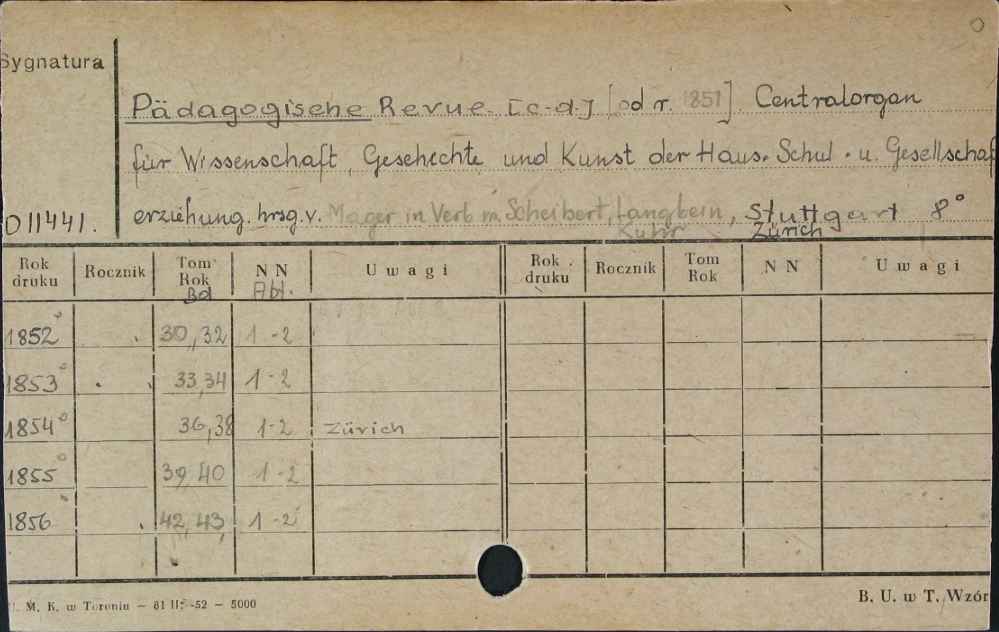 Sygnatura
Pädagogische Revue. [c.d.] [od r. 1851] Centralorgan
für Wissenschaft, Geschichte und Kunst der Haus. Schul. u. Gesellschaf
011441. erziehung. hrsg. v. Mager in Verb m. Scheibert, Langbein, Stuttgart 8°
Kuhr Zürich
Rok druku Rocznik Tom Rok Bd NN Abt. Uwagi Rok druku Rocznik Tom Rok NN Uwagi
1852 30, 32 1-2
1853 33, 34 1-2
1854 36, 38 1-2 Zürich
1855 39, 40 1-2
1856 42, 43 1-2
M. K. w Toruniu — 81 II. -52 — 5000 B. U. w T. Wzór